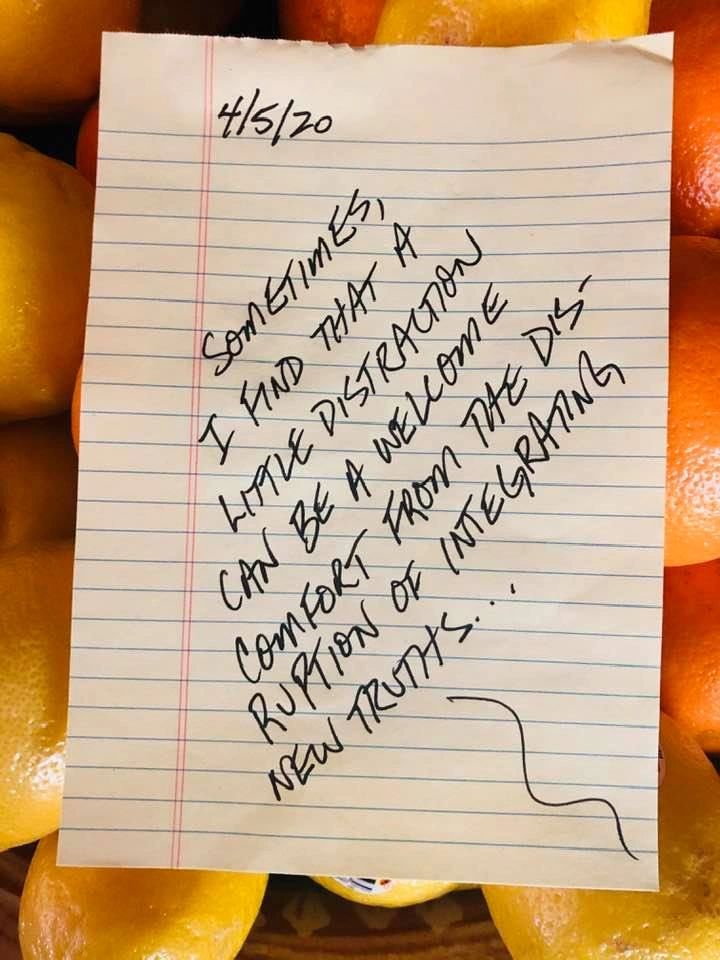 4/5/20
SOMETIMES,
I FIND THAT A
LITTLE DISTRACTION
CAN BE A WELCOME
COMFORT FROM THE DIS-
RUPTION OF INTEGRATING
NEW TRUTHS...